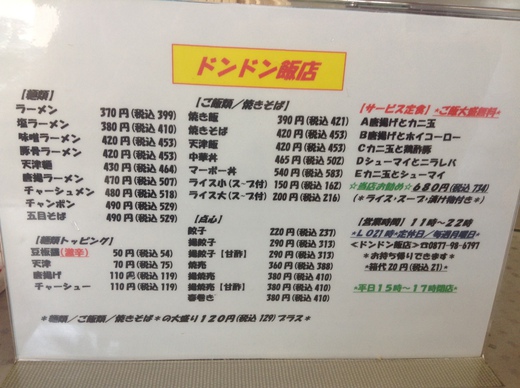 ドンドン飯店
【麺類】
ラーメン 370円(税込 399)
塩ラーメン 380円(税込 410)
味噌ラーメン 420円(税込 453)
豚骨ラーメン 420円(税込 453)
天津麺 430円(税込 464)
唐揚ラーメン 470円(税込 507)
チャーシュメン 480円(税込 518)
チャンポン 490円(税込 529)
五目そば 490円(税込 529)
【麺類トッピング】
豆板醤(激辛) 50円(税込 54)
天津 70円(税込 75)
唐揚げ 110円(税込 119)
チャーシュー 110円(税込 119)
【ご飯類/焼きそば】
焼き飯 390円(税込 421)
焼きそば 420円(税込 453)
天津飯 420円(税込 453)
中華丼 465円(税込 502)
マーボー丼 540円(税込 583)
ライス小(スープ付) 150円(税込 162)
ライス大(スープ付) 200円(税込 216)
【点心】
餃子 220円(税込 237)
揚餃子 290円(税込 313)
揚餃子【甘酢】 290円(税込 313)
焼売 360円(税込 388)
揚焼売 380円(税込 410)
揚焼売【甘酢】 380円(税込 410)
春巻き 380円(税込 410)
【サービス定食】*ご飯大盛無料*
A唐揚げとカニ玉
B唐揚げとホイコーロー
Cカニ玉と鶏酢豚
Dシューマイとニラレバ
Eカニ玉とシューマイ
☆当店お勧め☆680円(税込 734)
(*ライス・スープ・漬け物付き*)
【営業時間】11時~22時
*L.O21時*定休日/毎週月曜日*
<ドンドン飯店>☎0877-98-6797
*お持ち帰りできます*
*箱代20円(税込 21)*
*平日15時~17時閉店*
*麺類/ご飯類/焼きそば*の大盛り120円(税込 129)プラス*